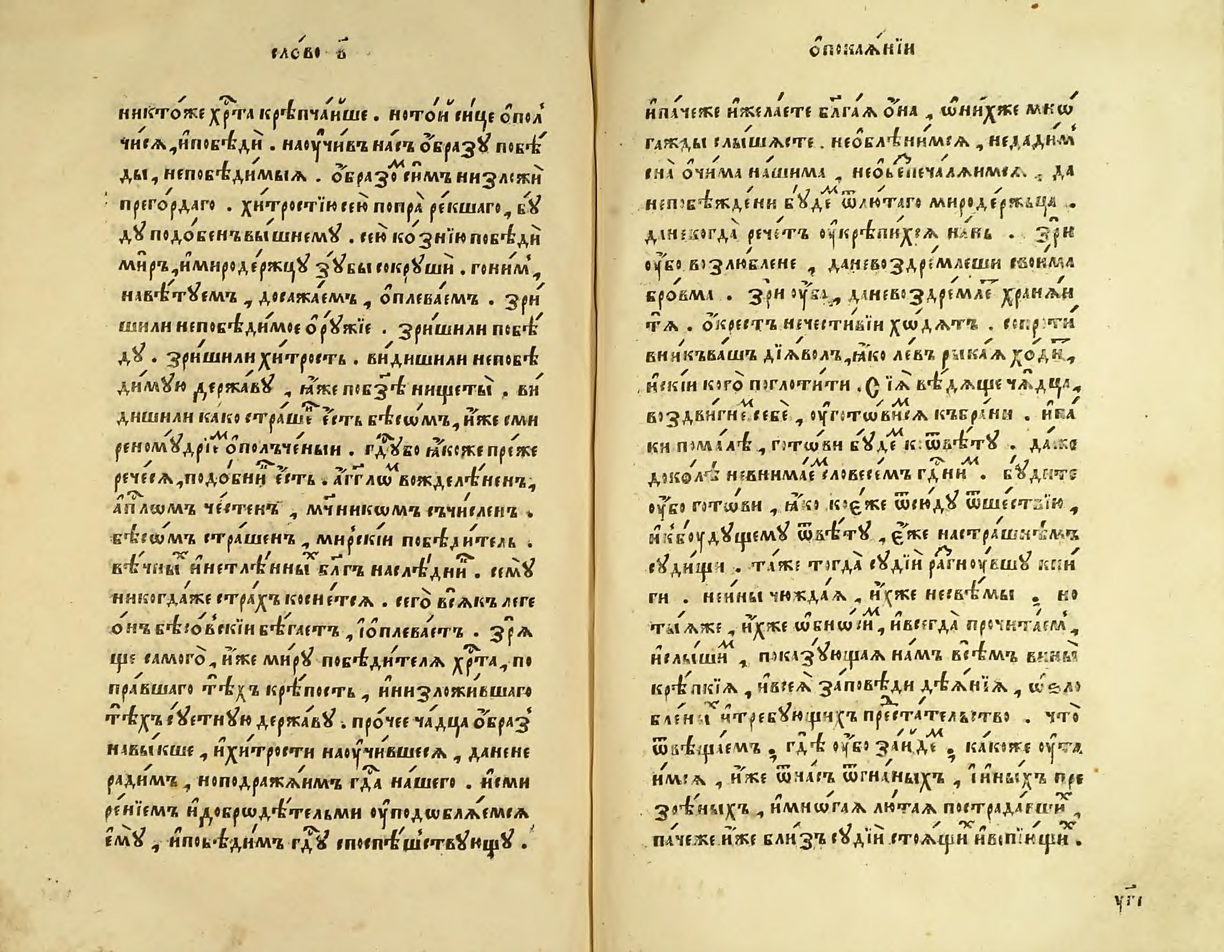 сло́во в҃
никто́же хрⷭ҇та крѣпча́йше . ното́й си́це ѻ҆пол
чи́сѧ , и҆побѣдѝ . наѹчи́въ на́съ ѻ҆́бразꙋ побѣ́
ды , непобѣди́мыѧ . ѻ҆́бразоⷨ си́мъ низложѝ
прего́рдаго . хи́тростїю се́ю попра̀ ре́кшаго , бꙋ́
дꙋ подо́бенъ вы́шнемꙋ . се́ю ко́знїю побѣдѝ
ми́ръ , и҆миродержцꙋ зꙋ́бы сокрꙋшѝ . гони́м ,
навѣ́тꙋемъ , досажа́емъ , ѻ҆плева́емъ . зри́
шили непобѣди́мое ѻ҆рꙋ́жїе . зри́шили побѣ́
дꙋ . зри́шили хи́трость . ви́дишили непобѣ
ди́мꙋю держа́вꙋ , ꙗ҆́же побз҃ѣ нищеты̀ . ви́
дишили ка́ко стра́шеⷩ е҆́сть бѣсѡ́мъ , и҆́же сми
реномꙋ́дрїеⷨ ѻ҆полче́ныи . гдⷭ҇ꙋ ᲂу҆бо ꙗ҆́коже пре́же
рече́сѧ , подо́бниⷦ е҆́сть . а҆́гг҃лѡⷨ вожделѣ́ненъ ,
а҆пⷭ҇лѡмъ че́стенъ , мч҃никѡмъ съчи́сленъ .
бѣсѡ́мъ стра́шенъ , ми́рскїи побѣди́тель .
вѣ́чныⷯ и҆нетлѣ́нныⷯ бл҃гъ наслѣ́дниⷦ . семꙋ̀
никогда́же стра́хъ косне́тсѧ . сего̀ всѧ́къ леге
ѻ҆́нъ бѣсо́вскїи бѣ́гаетъ , і҆ѻ҆плева́етъ . зрѧ́
ще самого̀ , и҆́же ми́рꙋ побѣди́телѧ хрⷭ҇та̀ , по
пра́вшаго тѣ́хъ крѣ́пость , и҆низложи́вшаго
тѣ́хъ сꙋ́етнꙋю держа́вꙋ . про́чее ча́дца ѻ҆́браз
навы́кше , и҆хи́трости наꙋчи́вшесѧ , да́нене
ради́мъ , ноподража́имъ гдⷭ҇а на́шего . и҆сми
ре́нїемъ и҆добродѣ́тельми ᲂу҆подѡблѧ́емсѧ
е҆мꙋ̀ , и҆побѣди́мъ гдⷭ҇ꙋ споспѣ́шствꙋющꙋ .
ѻ҆покаѧ́нїи
и҆па́чеже и҆жела́ете бл҃га́ѧ ѻ҆́на , ѡ҆ни́хже мнѡ
га́жды слы́шасте . необлѣни́мсѧ , недади́м
сна̀ ѻ҆чи́ма на́шима , необⸯепеча́лѧимсѧ , да
непобѣжде́ни бꙋ́деⷨ ѿлю́таго миродержьца .
дане́когда рече́тъ ᲂу҆крѣпи́хсѧ на́нь . зри
ᲂу҆́бо возлю́блене , даневоздре́млеши свои́ма
бро́вма . зри ᲂу҆́бо , даневоздре́млеⷮ хранѧ́и
тѧ̀ . ѻ҆́крестъ нечести́вїи хо́дѧтъ . сопроти́
вни́къ ва́шъ дїѧ́волъ , ꙗ҆́ко ле́въ рыка́ѧ хо́диⷮ ,
и҆скі́и кого̀ поглоти́ти . Сїѧ̀ вѣ́дѧще ча́дца ,
воздви́гнеⷨ себѐ , ᲂу҆гото́вимсѧ къ бра́ни . и҆па́
ки пома́лѣ , гото́ви бꙋ́деⷨ кѿвѣ́тꙋ . да́же
доко́лѣ невнима́еⷨ словесе́мъ гдⷭ҇ниⷨ . бꙋ́дите
ᲂу҆́бо гото́ви , ꙗ҆́ко ко є҆́же ѿсю́дꙋ ѿше́ствїю ,
и҆кбꙋ́дꙋщемꙋ ѿвѣ́тꙋ , є҆́же настра́шнѣмъ
сꙋди́щи . та́же тогда̀ сꙋдїѝ ра́гнꙋвшꙋ кни́
ги . неи́ны чюжда́ѧ , и҆́хже несвѣ́мы , но
ты́ѧже , и҆́хже ѡ҆бно́сиⷨ , и҆всегда̀ прочита́ем ,
и҆слы́шиⷨ , пока́зꙋющаѧ на́мъ всѣ́мъ ви́ны
крѣ́пкїѧ , и҆всеѧ̀ за́повѣди дѣѧ́нїѧ , ѡ҆ѕло
бле́ныⷯ и҆тре́бꙋющихъ преⷣста́тельство . что̀
ѿвѣща́емъ , гдѣ̀ ᲂу҆́бо за́йдеⷨ , ка́коже ᲂу҆та
и́мсѧ , и҆́же ѿна́съ ѿгна́ныхъ , і҆и҆́ныхъ пре
зрѣ́ныхъ , и҆мно́гаѧ лю́таѧ пострада́вшиⷯ ,
па́чеже и҆́же бли́зъ сꙋдїѝ стоѧ́щиⷯ и҆вопїю́щиⷯ .
ѵ҃гі